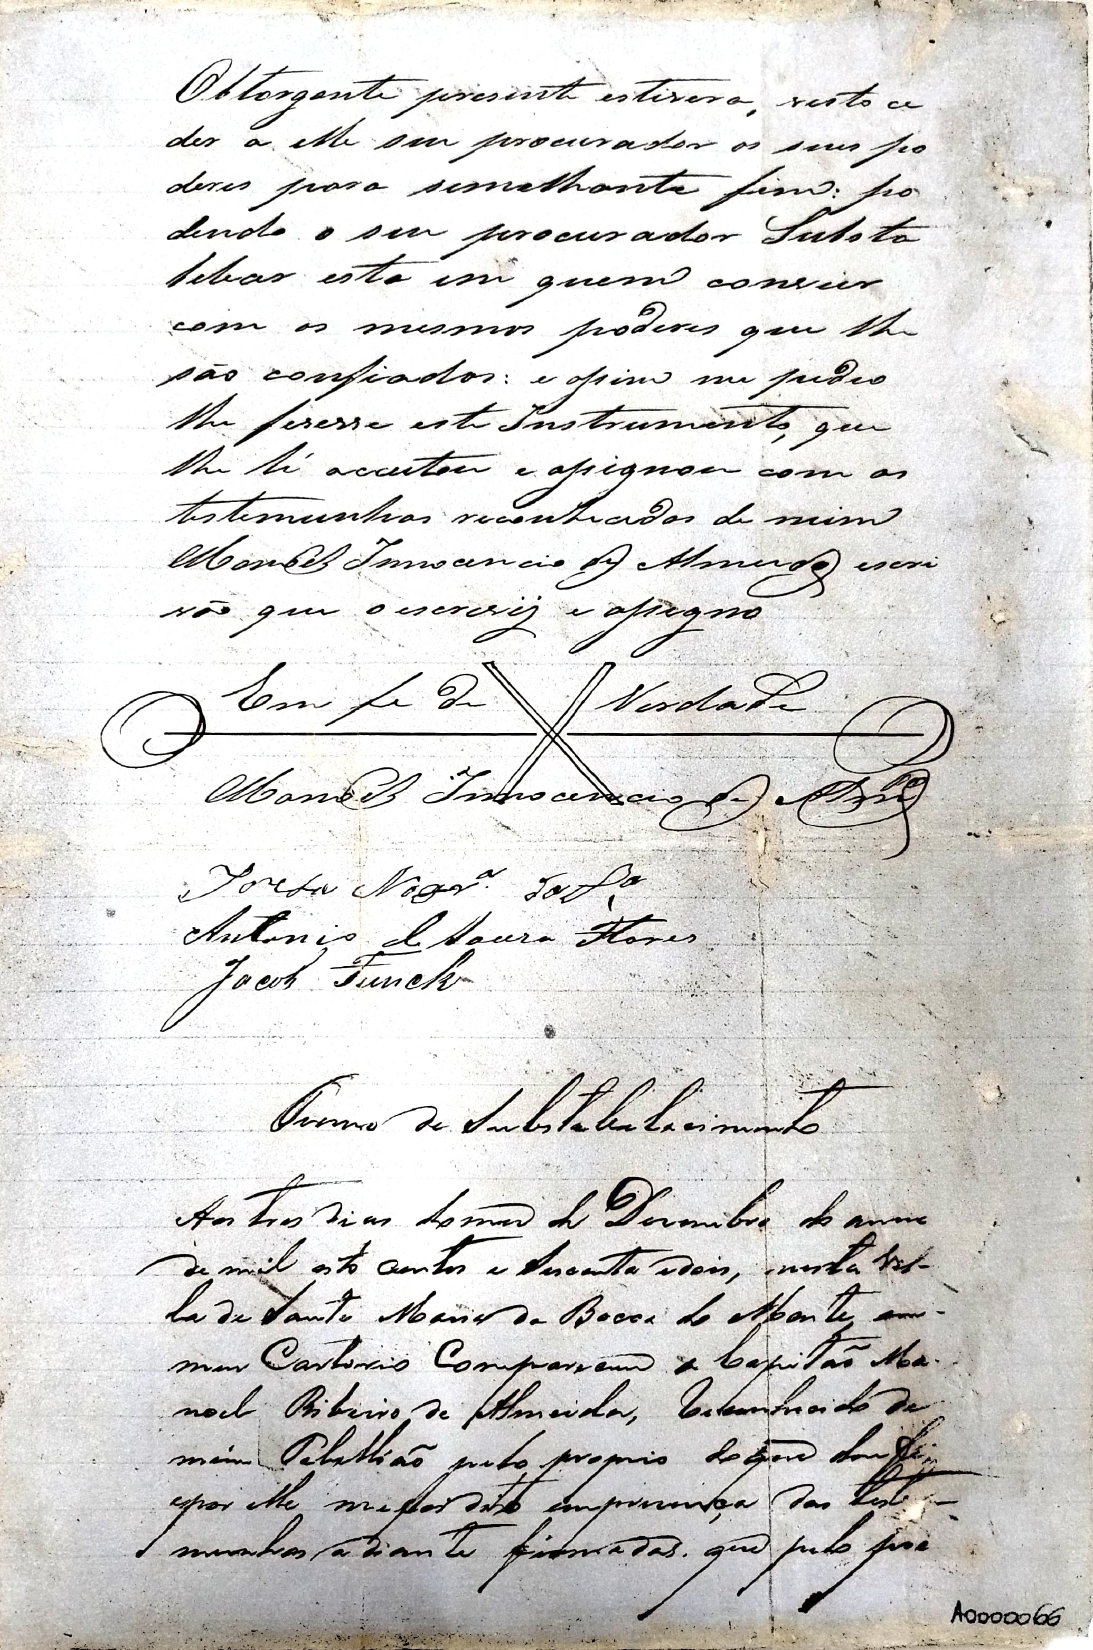 Obtorgante presente estivera, visto ce
der a elle seu procurador os seus po
deres para semelhante fim: po
dendo o seu procurador Substa
belecer esta em quem convier
com os mesmos poderes que lhe
são confiados: e assim me pedio
lhe fizesse este Instrumento, que
lhe li acceitou e assignou com as
testemunhas reconhecidas de mim
Manoel Innocencio de Almeida escri
vão que o escrevij e assigno
Em fe de Verdade
Manoel Innocencio de Almda
Nogra. da Sa
Antonio de Souza Flores
Jacob Funck
Termo de Substabelecimento
Aos tres dias do mez de Dezembro do anno
de mil oito centos e sessenta e dois, nesta Vil-
la de Santa Maria da Bocca do Monte em-
meu Cartorio Compareceu o Capitão Ma-
noel Ribeiro de Almeida, reconhecido de
mim Tabellião pelo proprio do que dou fé
e por elle me foi dito em presença das teste-
munhas a diante firmadas. que pelo pre
A0000066